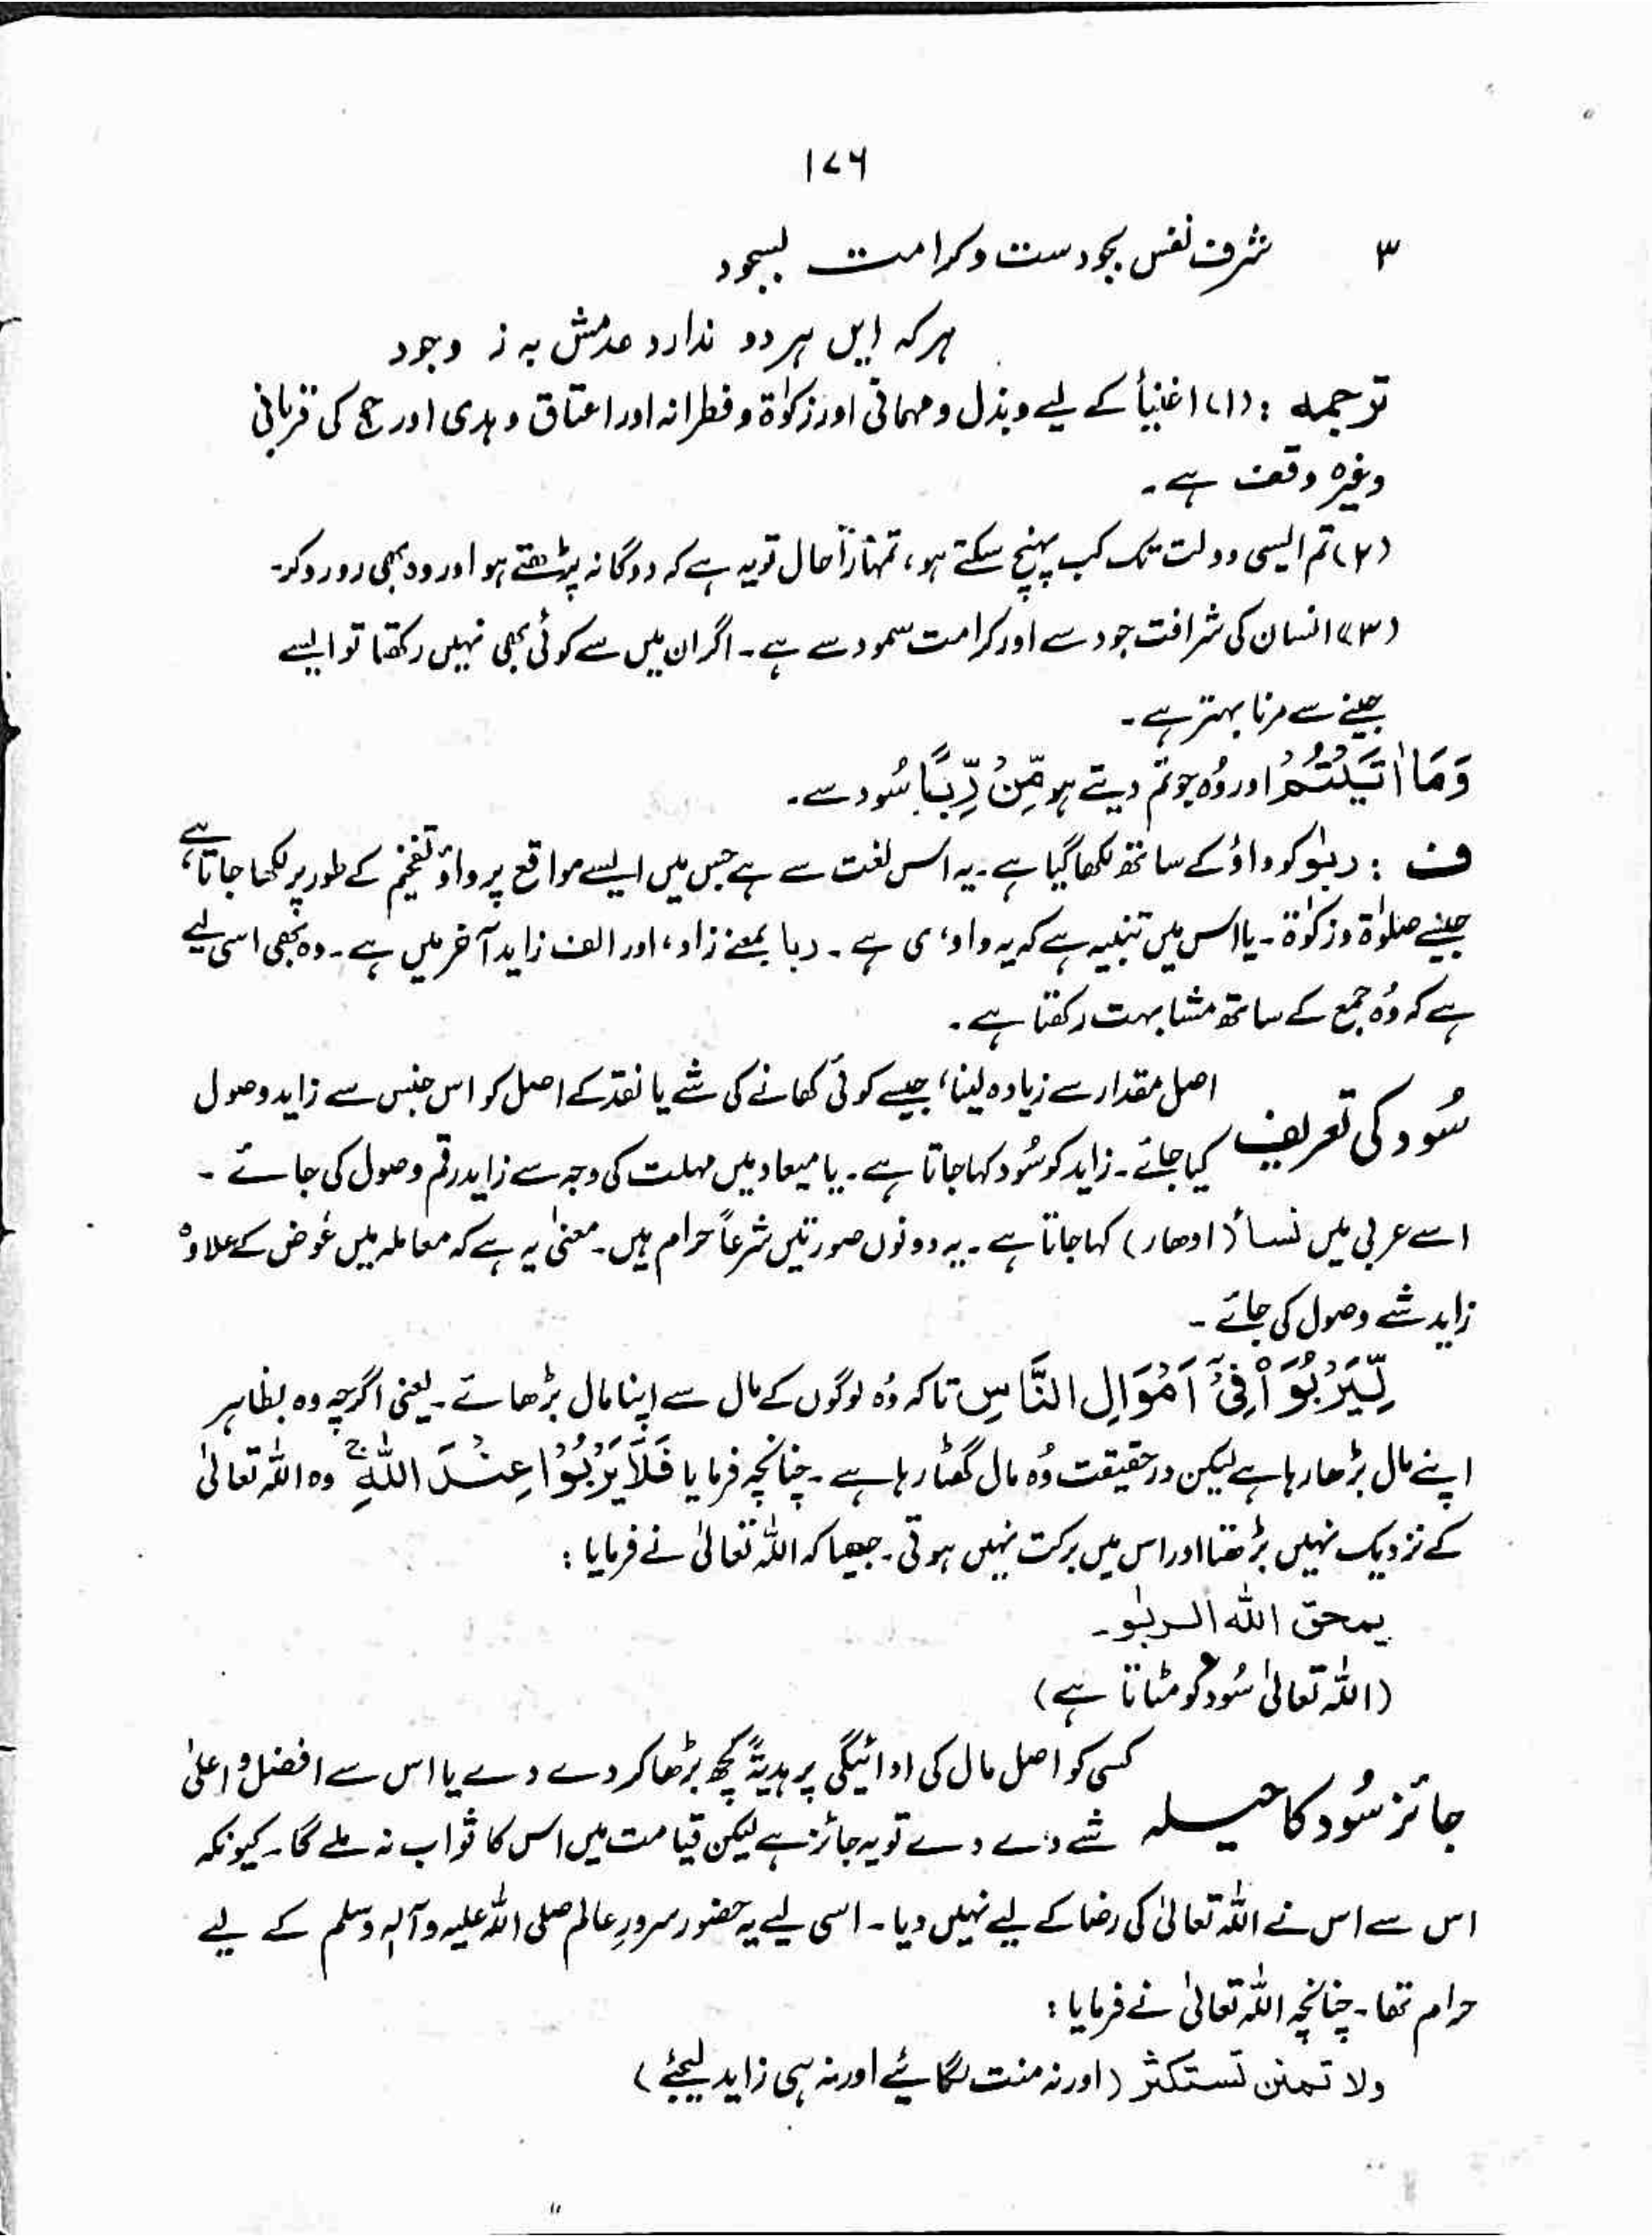 ۱۷۶
۳ شرف نفس بجودست و کرامت بسجود
ہر کہ ایں ہر دو ندارد عدمش بہ ز وجود
ترجمہ : (۱) اغنیأ کے لیے و بذل و مہمانی اور زکوٰۃ و فطرانہ اور اعتاق و ہدی اور حج کی قربانی
وغیرہ وقف ہے۔
(۲) تم ایسی دولت تک کب پہنچ سکتے ہو، تمہارا حال تو یہ ہے کہ دوگانہ پڑھتے ہو اور وہ بھی رو رو کر۔
(۳) انسان کی شرافت جود سے اور کرامت سجود سے ہے۔ اگر ان میں سے کوئی بھی نہیں رکھتا تو ایسے
جینے سے مرنا بہتر ہے۔
وَمَآ اٰتَیْتُمْ اور وُہ جو تم دیتے ہو مِّنْ رِّبًا سُود سے۔
ف : ربٰو کو واؤ کے ساتھ لکھا گیا ہے۔ یہ اس لغت سے ہے جس میں ایسے مواقع پر واؤ تفخیم کے طور پر لکھا جاتا ہے،
جیسے صلوٰۃ و زکوٰۃ۔ یا اس میں تنبیہ ہے کہ یہ واو، ی ہے۔ ربا بمعنے زاد، اور الف زاید آخر میں ہے۔ وہ بھی اسی لیے
ہے کہ وُہ جمع کے ساتھ مشابہت رکھتا ہے۔
سُود کی تعریف اصل مقدار سے زیادہ لینا، جیسے کوئی کھانے کی شے یا نقد کے اصل کو اس جنس سے زاید وصول
کیا جائے۔ زاید کو سُود کہا جاتا ہے۔ یا میعاد میں مہلت کی وجہ سے زاید رقم وصول کی جائے۔
اسے عربی میں نسأ (ادھار) کہا جاتا ہے۔ یہ دونوں صورتیں شرعاً حرام ہیں۔ معنیٰ یہ ہے کہ معاملہ میں عوض کے علاوہ
زاید شے وصول کی جائے۔
لِّیَرْبُوَا۟ فِیْۤ اَمْوَالِ النَّاسِ تاکہ وُہ لوگوں کے مال سے اپنا مال بڑھائے۔ یعنی اگرچہ وہ بظاہر
اپنے مال بڑھا رہا ہے لیکن درحقیقت وُہ مال گھٹا رہا ہے۔ چنانچہ فرمایا فَلَا یَرْبُوْا عِنْدَ اللّٰہِ ۚ وہ اللہ تعالیٰ
کے نزدیک نہیں بڑھتا اور اس میں برکت نہیں ہوتی۔ جیسا کہ اللہ تعالیٰ نے فرمایا :
یمحق اللہ الربٰو۔
(اللہ تعالیٰ سُود کو مٹاتا ہے)
جائز سُود کا حیلہ کسی کو اصل مال کی ادائیگی پر ہدیۃً کچھ بڑھا کر دے دے یا اس سے افضل و اعلیٰ
شے دے دے تو یہ جائز ہے لیکن قیامت میں اس کا ثواب نہ ملے گا۔ کیونکہ
اس سے اس نے اللہ تعالیٰ کی رضا کے لیے نہیں دیا۔ اسی لیے یہ حضور سرورِ عالم صلی اللہ علیہ وآلہ وسلم کے لیے
حرام تھا۔ چنانچہ اللہ تعالیٰ نے فرمایا :
ولا تمنن تستکثر (اور نہ منت لگائیے اور نہ ہی زاید لیجئے)